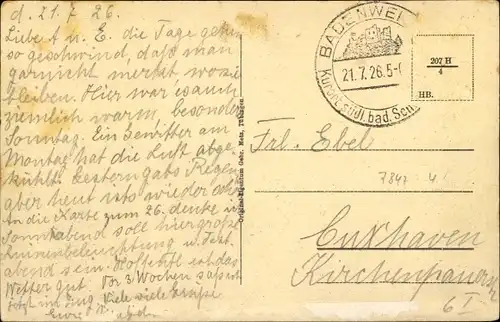 d. 21.7.26.
Liebe A u. E. die Tage gehn
so geschwind, daß man
garnicht merkt, wo sie
bleiben. Hier war es auch
ziemlich warm besonders
Sonntag. Ein Gewitter am
Montag hat die Luft abge
kühlt. Gestern gabs Regen
aber heut ists wieder
An die Karte zum 26. denke ich
Sonnabend soll hier große
Ruinenbeleuchtung u. Fest
abend sein. Hoffentl. ist das
Wetter gut. Vor 3 Wochen saß ich
jetzt im Zug. Viele viele Grüße
Eure
BADENWEI
21.7.26.5-6
Kurort südl. bad. Sch
207 H
4
HB.
Original-Eigentum Gebr. Metz, Tübingen
Frl. Ebel
7847
Cuxhaven
Kirchenpauerstr
6 I